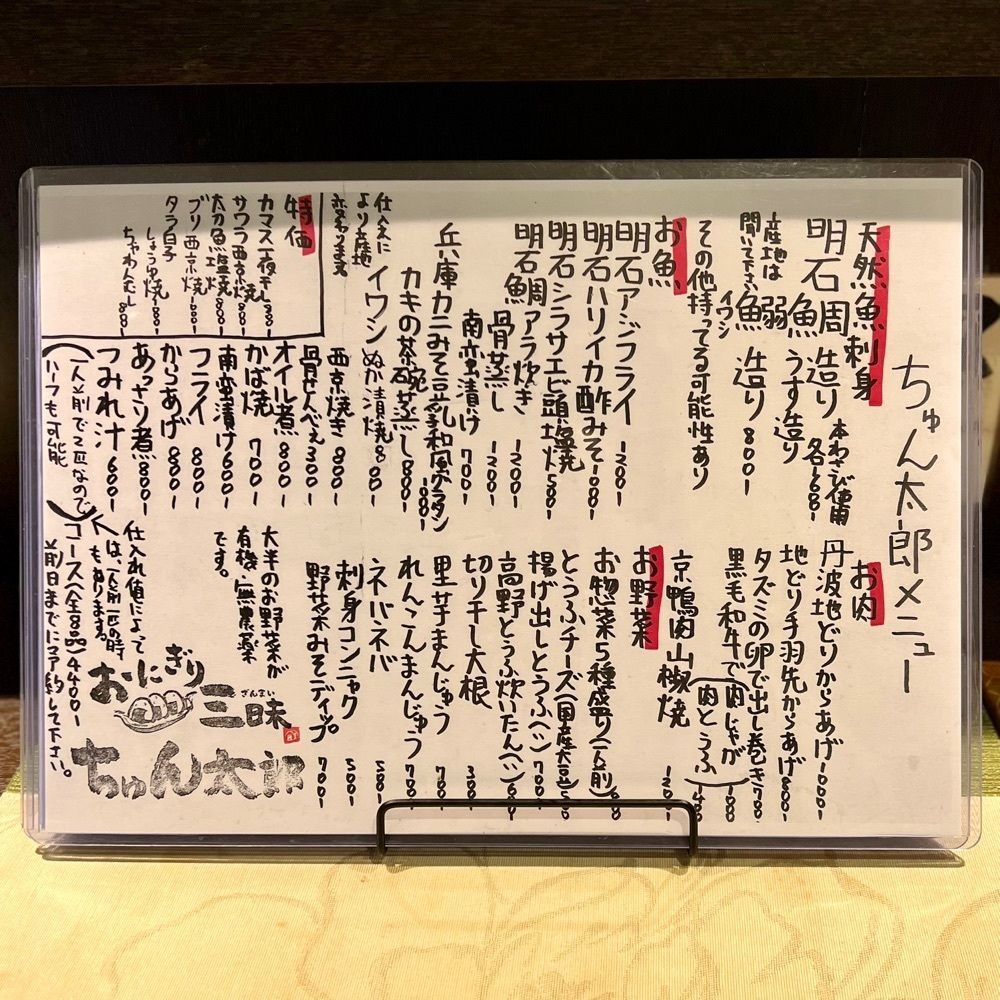 ちゅん太郎メニュー
天然魚刺身
明石周造り 本わさび使用
魚うす造り 各1200-
産地は
聞いて下さい
イワシ
造り 800-
その他持ってる可能性あり
お魚
明石アジフライ 1200-
明石ハリイカ酢みそ 1000-
明石シラサエビ頭塩焼 500-
明石鯛アラ炊き 1200-
骨蒸し 1200-
南蛮漬け 700-
兵庫カニみそ豆乳和風グラタン 1000-
カキの茶碗蒸し 800-
仕入により産地
変わります
イワシ
ぬか漬焼 800-
西京焼き 800-
骨せんべえ 300-
オイル煮 800-
かば焼 700-
南蛮漬け 600-
フライ 800-
からあげ 800-
あっさり煮 800-
つみれ汁 600-
(一人前で2匹なので
ハーフも可能)
特価
カマス一夜干し
サワラ西京焼 800-
太刀魚塩焼 800-
ブリ西京焼 800-
タラ白子
しょうゆ焼 800-
ちゃわんむし 800-
お肉
丹波地どりからあげ 1000-
地どり手羽先からあげ 800-
タズミの卵で出し巻き 700-
黒毛和牛で(肉じゃが
肉とうふ)
京鴨肉山椒焼
お野菜
お惣菜5種盛り(一人前)
とうふチーズ(国産大豆)
揚げ出しとうふ(ハン) 700-
高野とうふ炊いたん(ハン)
切り干し大根 300-
里芋まんじゅう 700-
れんこんまんじゅう 700-
ネバネバ 500-
刺身コンニャク 500-
野菜みそディップ 700-
大半のお野菜が
有機・無農薬
です。
仕入れ値によって
もあります。
コース(全8品)4400-
前日までに予約して下さい。
おにぎり
三昧
ざんまい
ちゅん太郎